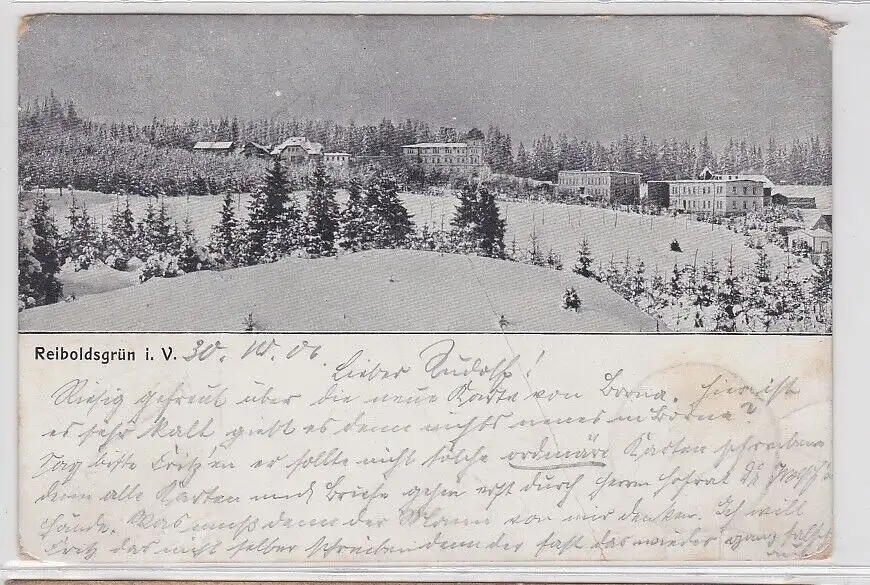 Reiboldsgrün i. V. 30. XI. 06.
Lieber Rudolf!
Riesig gefreut über die neue Karte von Borna. Hier ist
es sehr kalt giebt es denn nichts neues in Borna?
Sag bitte Fritz'en er sollte nicht solche ordinäre Karten schreiben
denn alle Karten und Briefe gehen erst durch Herrn Hofrat Dr
Hände. Was muß denn der Mann von mir denken. Ich will
Fritz das nicht selber schreiben denn der faßt das wieder ganz falsch
auf